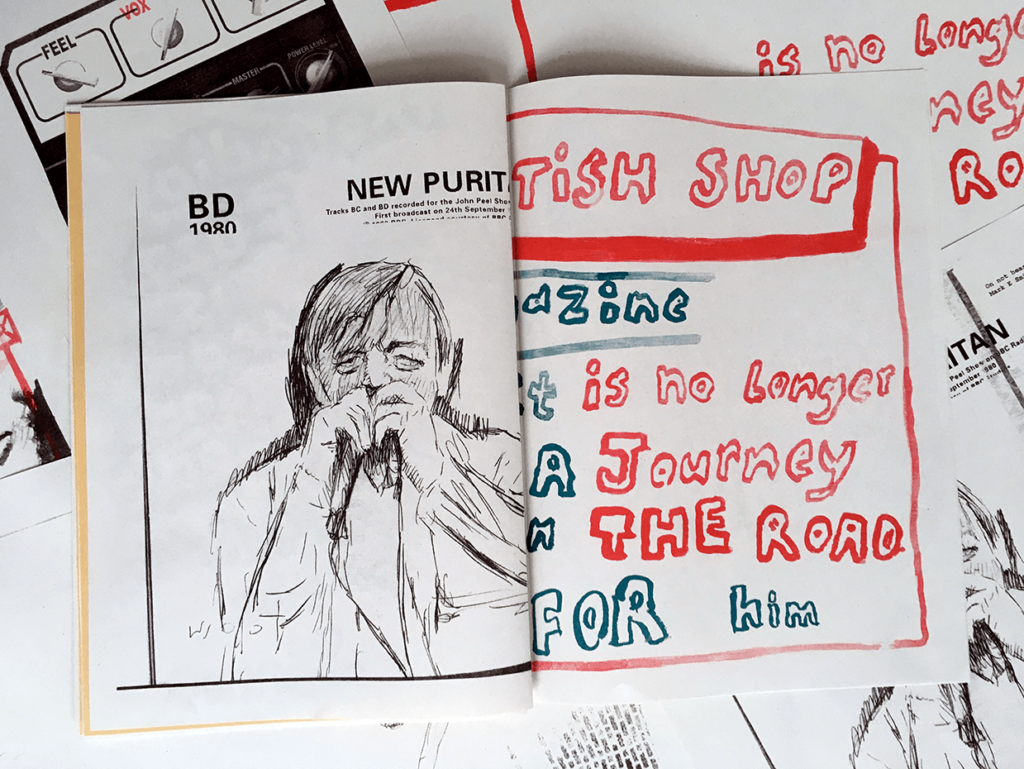 FEEL
VOX
MASTER
POWER LEVEL
is no Longe
ney
RO
BD
1980
NEW PURIT
Tracks BC and BD recorded for the John Peel Show
First broadcast on 24th September
TISH SHOP
azine
t is no Longer
A Journey
n THE ROAD
FOR him
On not hea
Mark E Sm
ITAN
Peel Show on BBC Radi
eptember 1980